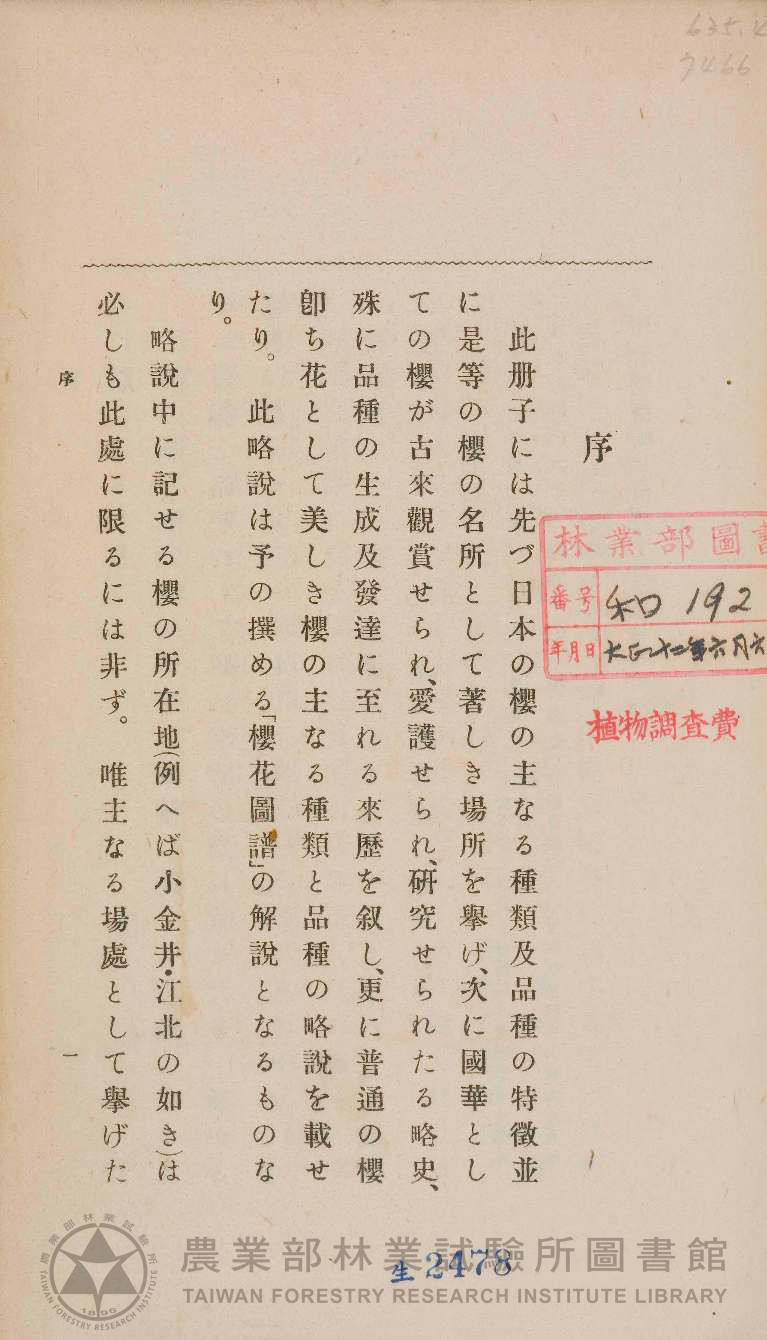 635.4
7466
序
此册子には先づ日本の櫻の主なる種類及品種の特徴並
に是等の櫻の名所として著しき場所を擧げ、次に國華とし
ての櫻が古來觀賞せられ、愛護せられ、研究せられたる略史、
殊に品種の生成及發達に至れる來歷を叙し、更に普通の櫻
卽ち花として美しき櫻の主なる種類と品種の略說を載せ
たり。此略說は予の撰める「櫻花圖譜」の解說となるものな
り。
略說中に記せる櫻の所在地(例へば小金井・江北の如き)は
必しも此處に限るには非ず。唯主なる場處として擧げた
序
一
林業部圖書
番号 和 192
年月日 大正十二年六月六
植物調查費
生 2478
農業部林業試驗所圖書館
TAIWAN FORESTRY RESEARCH INSTITUTE LIBRARY
農業部林業試驗所
1896
TAIWAN FORESTRY RESEARCH INSTITUTE